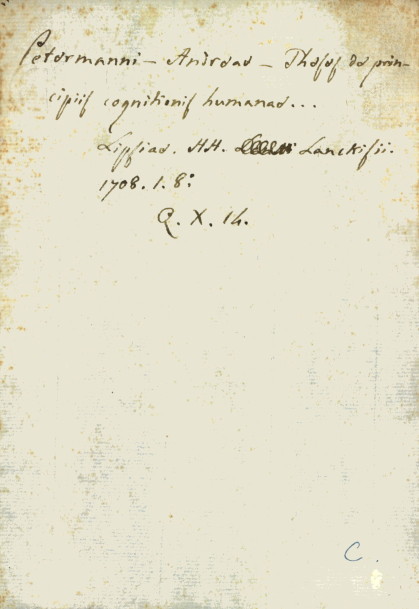 Petermanni – Andreae – Theses de prin-
cipiis cognitionis humanae...
Lipsiae. HH. Lanckisii.
1708. 1. 8:
Q. X. 14.
C.